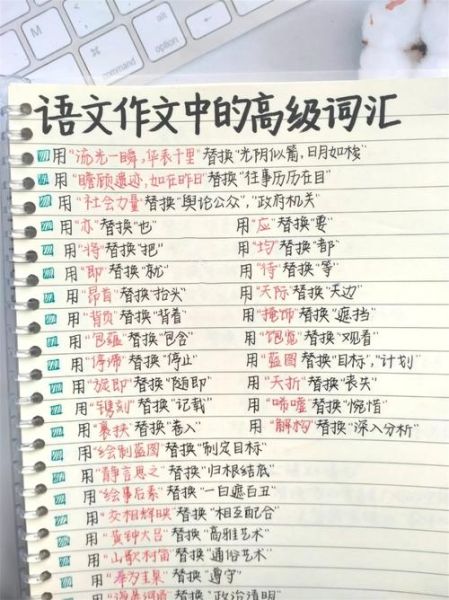 control
alt
option
command
语文作文中的高级词汇
用"流光一瞬,华表千里"替换"光阴似箭,日月如梭"
用"瞻顾遗迹,如在昨日"替换"往事历历在目"
用"社会力量"替换"舆论公众","政府机关"
用"亦"替换"也" 用"应"替换"要"
用"将"替换"把" 用"均"替换"都"
用"即"替换"就" 用"待"替换"等"
用"昂首"替换"抬头" 用"天际"替换"天边"
用"背负"替换"背着" 用"掩饰"替换"遮挡"
用"包蕴"替换"包含" 用"饱览"替换"观看"
用"停滞"替换"停止" 用"蓝图"替换"目标","计划"
用"旋即"替换"随即" 用"夭折"替换"丧失"
用"镌刻"替换"记载" 用"唏嘘"替换"惋惜"
用"裹挟"替换"卷入" 用"解构"替换"深入分析"
用"绘制蓝图"替换"制定目标"
用"静言思之"替换"归根结底"
用"绘事后素"替换"一白遮百丑"
用"交相辉映"替换"相互配合"
用"黄钟大吕"替换"高雅艺术"
用"山歌村笛"替换"通俗艺术"
用"奉为圭臬"替换"遵守"
用"海晏河清"替换"政治清明"